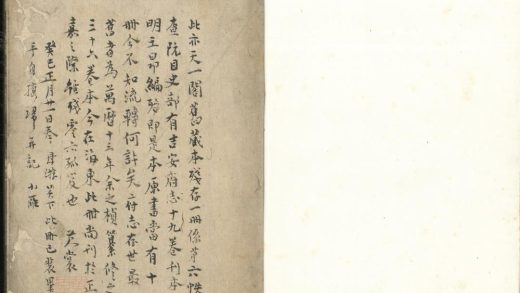 此亦天一閣舊藏本殘存一冊係第六帙
查阮目史部有吉安府志十九卷刊本
明王昂編輯即是本原書當有十
冊今不知流轉何許矣府志存世最
舊者為萬曆十三年余之楨纂修之
三十六卷本今在海東此冊尚刊於正
嘉之際雖殘零亦孤笈也 黃裳
癸巳正月廿一日奉母游吳下此冊已裝畢
手自 并記 小